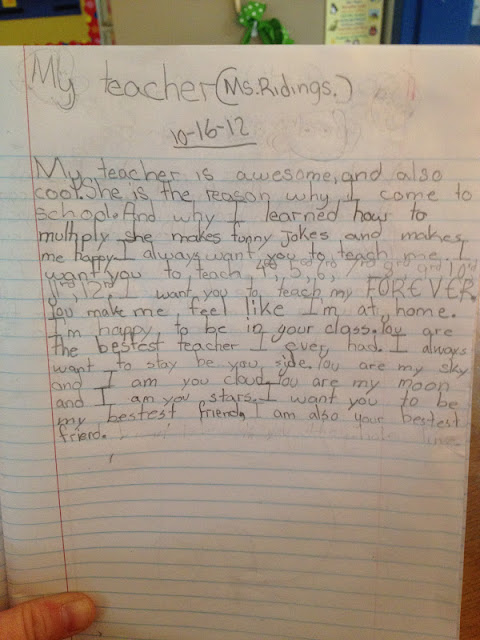 My teacher (Ms.Ridings.)
10-16-12
My teacher is awesome, and also
cool. She is the reason why I come to
school. And why I learned how to
multiply she makes funny jokes and makes
me happy. I always want you to teach me. I
want you to teach, 4th, 5, 6, 7nd, 8, 9rd, 10rd
11rd, 12rd, I want you to teach my FOREVER.
You make me feel like I'm at home.
I'm happy, to be in your class. You are
the bestest teacher I ever had. I always
want to stay be you side. You are my sky
and I am you cloud. You are my moon
and I am you stars. I want you to be
my bestest friend. I am also your bestest
friend.